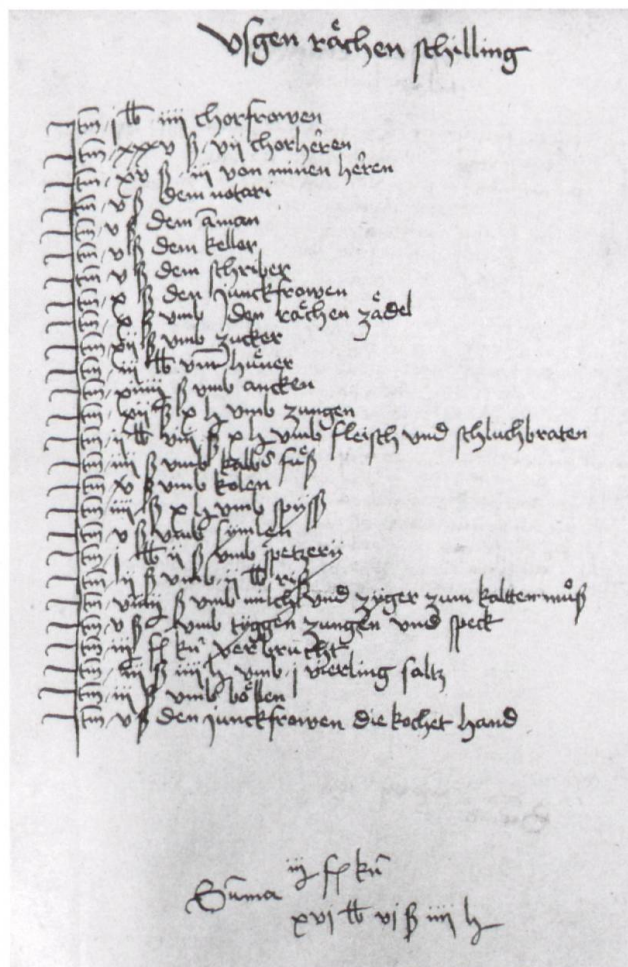 vsgen råchen schilling
Itm j lb iiij chorfrowen
Itm xxxv ß vij chorheren
Itm xv ß iij von minen heren
Itm v ß dem notari
Itm v ß dem aman
Itm v ß dem keller
Itm v ß dem schriber
Itm x ß den junckfrowen
Itm x ß vmb den råchen zådel
Itm xij ß vmb zucker
Itm iij lb viij hůner
Itm xiiij ß vmb ancken
Itm xij ß x h vmb zungen
Itm ij lb viij ß x h vmb fleisch vnd schluchbraten
Itm iiij ß vmb kalbs fůß
Itm x ß vmb kolen
Itm iiij ß x h vmb spiss
Itm v ß vmb simlen
Itm j lb ij ß vmb spetzerij
Itm ij ß vmb ij lb riß
Itm viiij ß vmb milch vnd zyger zum kaltten můß
Itm v ß vmb tiggen zungen vnd speck
Itm iij f ku verbrucht
Itm iij ß iiij h vmb j vierling saltz
Itm iij ß vmb böllen
Itm v ß den junckfrowen die kochet hand
Sūma iij f ku
xvj lb vj ß iiij h